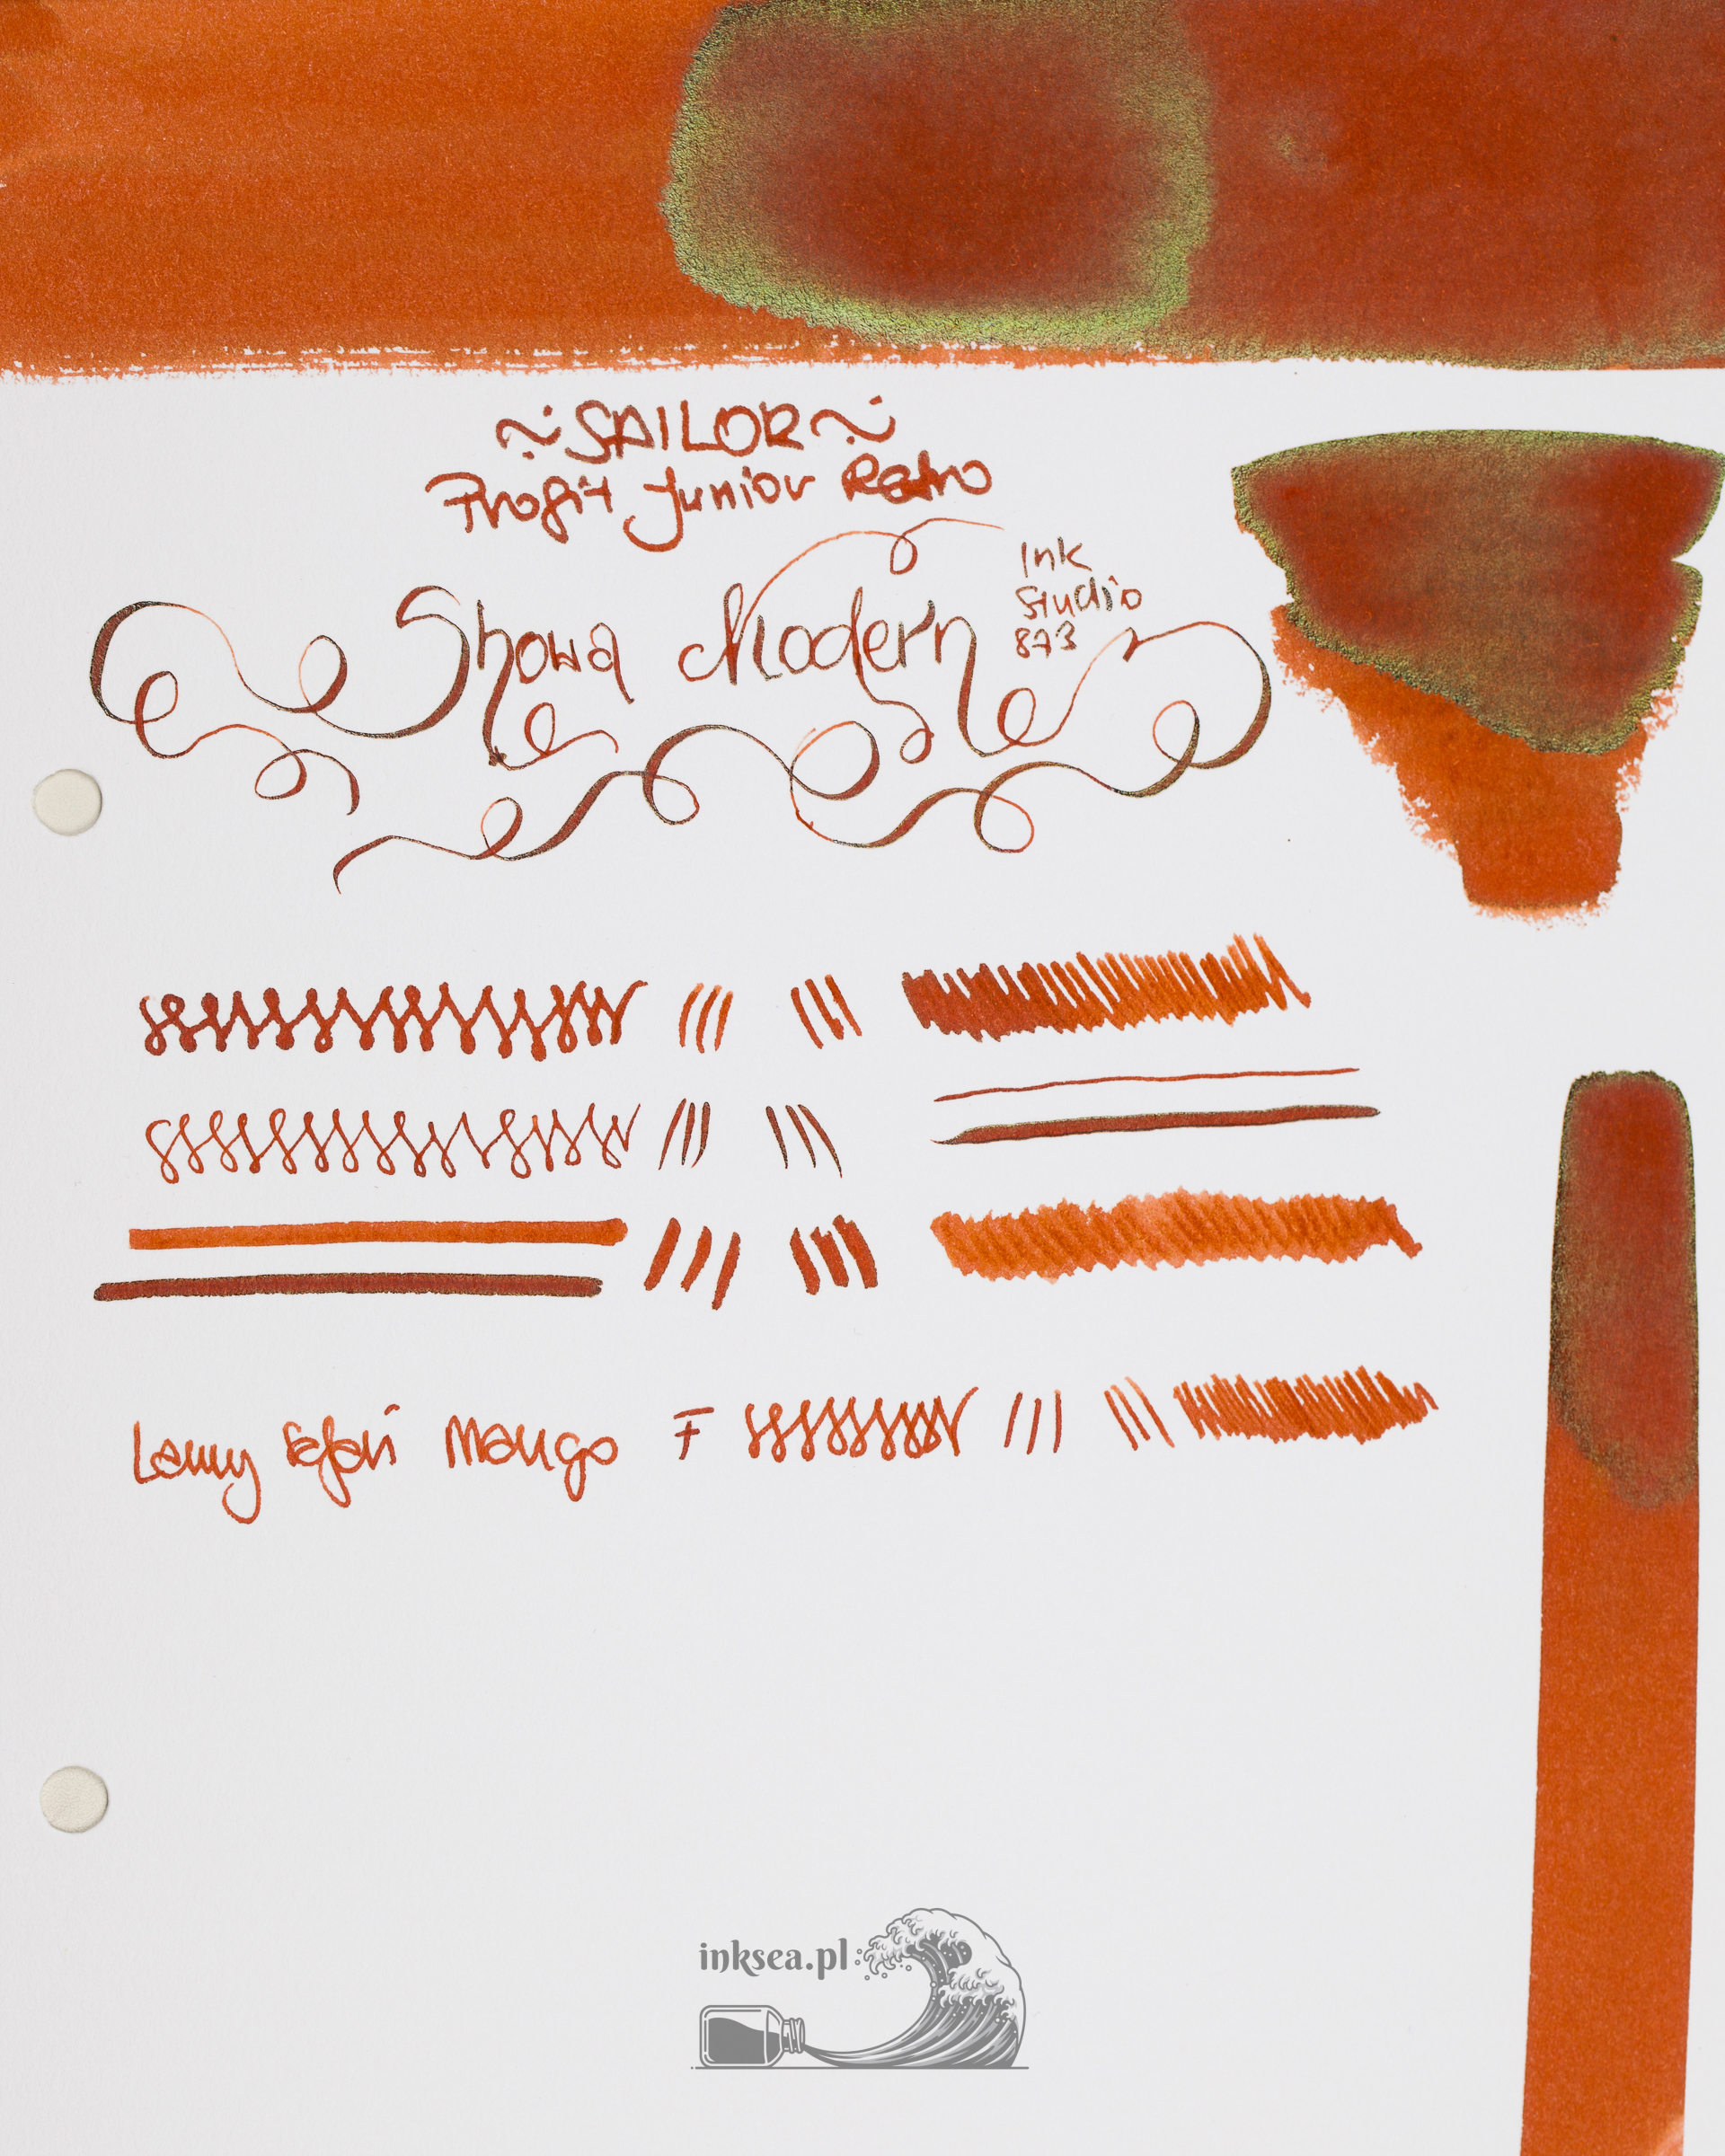 ~SAILOR~
Profit Junior Retro
Showa Modern
Ink
Studio
873
Lamy Safari Mango F
inksea.pl